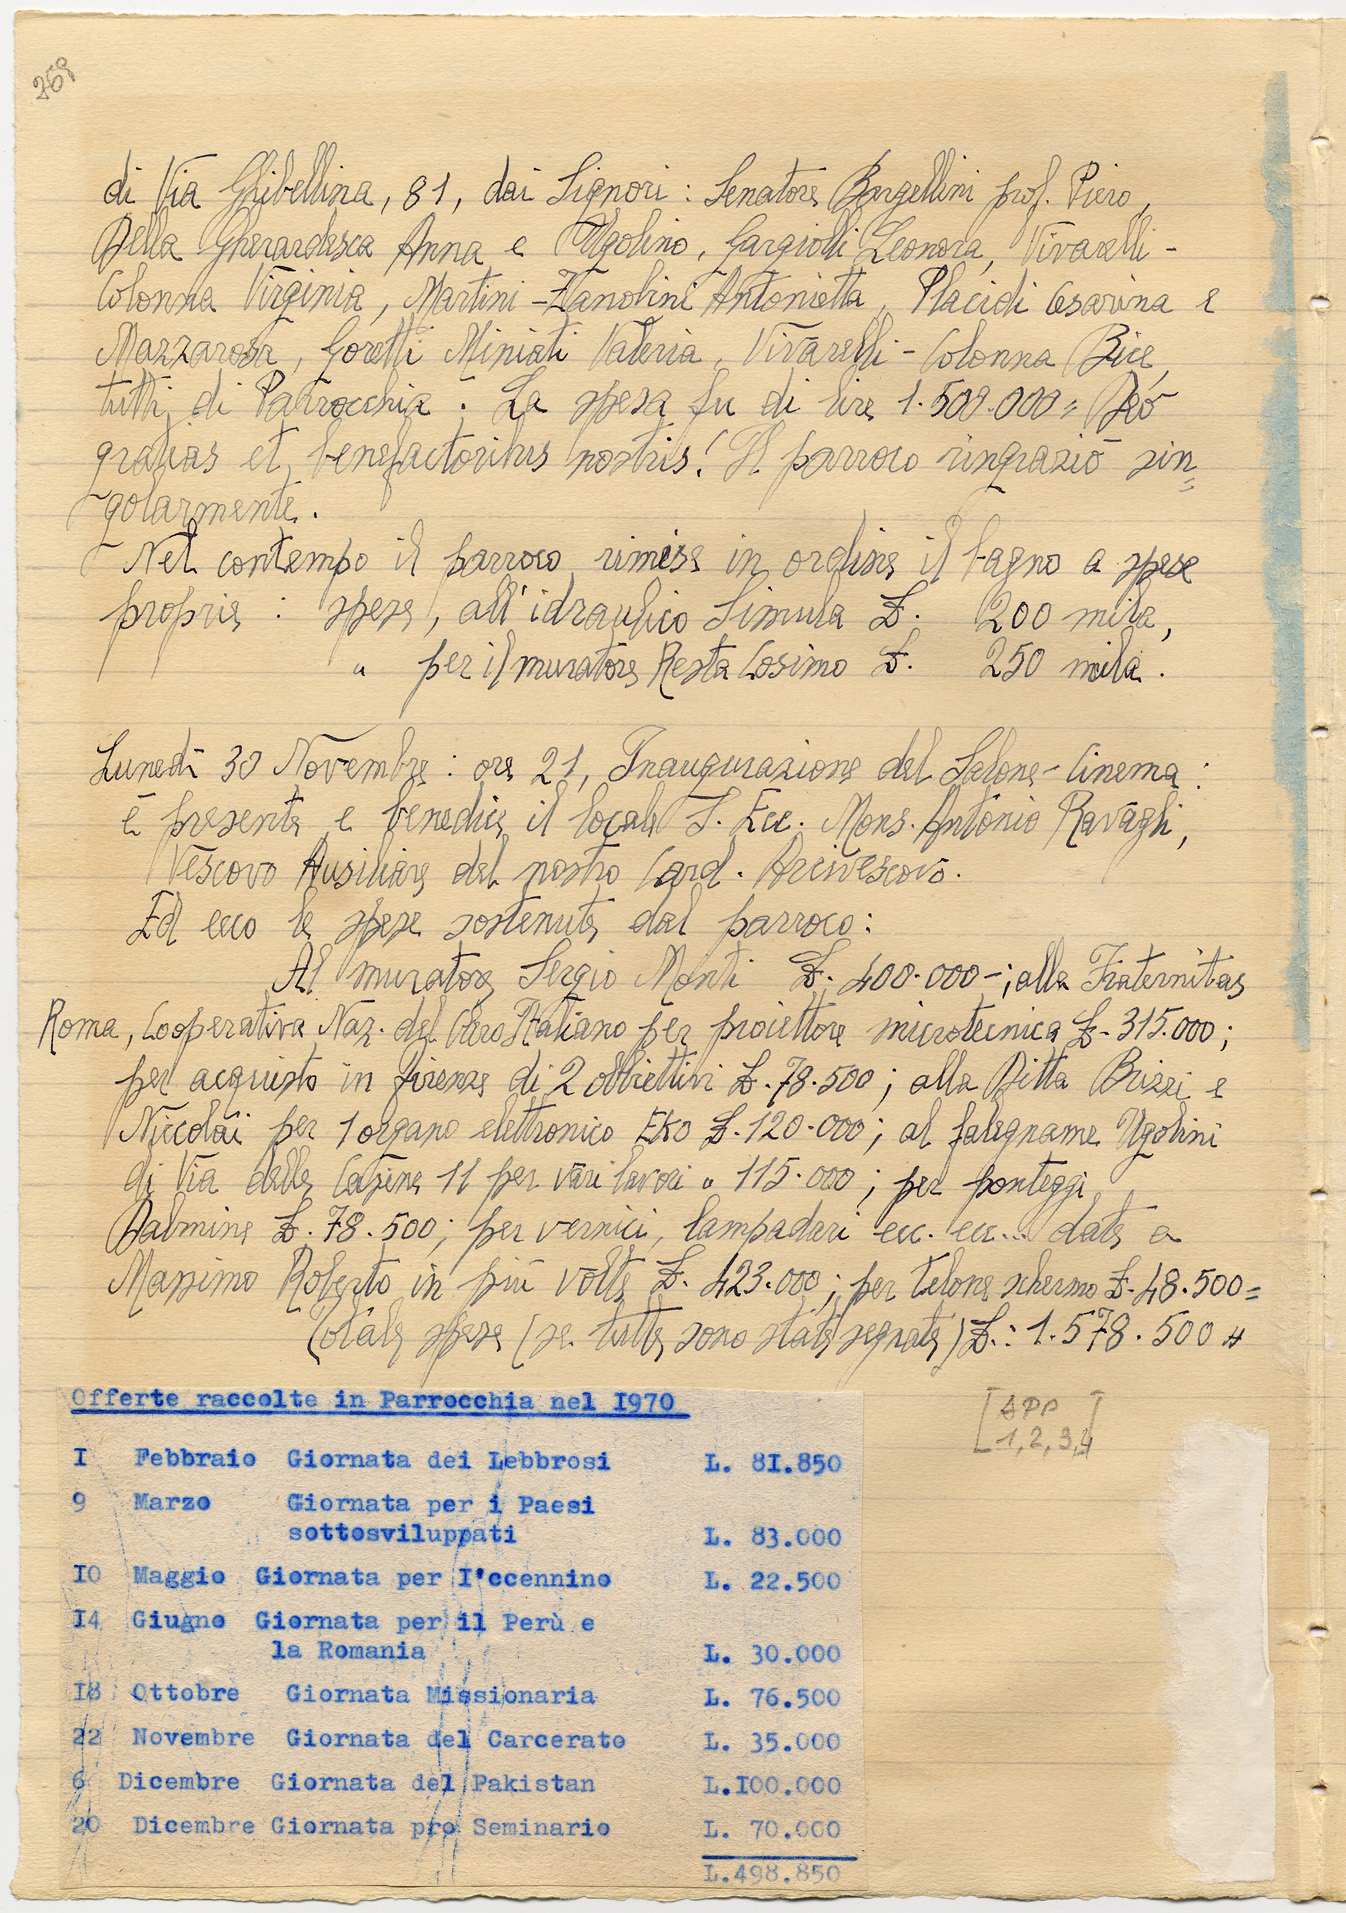 269
di Via Ghibellina, 81, dai Signori : Senatore Bargellini prof. Piero,
Della Gherardesca Anna e Ugolino, Gargiolli Leonora, Vivarelli-
Colonna Virginia, Martini-Zanobini Antonietta, Placidi Cesarina e
Mazzarosa, Goretti Miniati Valeria, Vivarelli-Colonna Bice,
tutti di Parrocchia. La spesa fu di lire 1.500.000= Deo
gratias et benefactoribus nostris! Il parroco ringraziò sin=
golarmente.
Nel contempo il parroco rimise in ordine il bagno a spese
proprie : spese, all'idraulico Simula £. 200 mila,
" per il muratore Resta Cosimo £. 250 mila.
Lunedì 30 Novembre : ore 21, Inaugurazione del Salone-Cinema :
è presente e benedice il locale S. Ecc. Mons. Antonio Ravagli,
Vescovo Ausiliare del nostro Card. Arcivescovo.
Ed ecco le spese sostenute dal parroco:
Al muratore Sergio Monti £. 400.000-; alla Fraternitas
Roma, Cooperativa Naz. del Clero Italiano per proiettore microtecnica £-315.000;
per acquisto in Firenze di 2 obbiettivi £.78.500; alla Ditta Brizzi e
Niccolai per 1 organo elettronico EKO £.120.000; al falegname Ugolini
di Via delle Casine 11 per vari lavori " 115.000; per ponteggi
Dalmine £.78.500; per vernici, lampadari ecc. ecc... date a
Massimo Roberto in più volte £. 423.000; per telone schermo £-48.500=
Totale spese (se tutte sono state segnate) £.: 1.578.500 #
Offerte raccolte in Parrocchia nel I970
I Febbraio Giornata dei Lebbrosi L. 8I.850
9 Marzo Giornata per i Paesi
sottosviluppati L. 83.000
IO Maggio Giornata per I'ccennino L. 22.500
I4 Giugno Giornata per il Perù e
la Romania L. 30.000
I8 Ottobre Giornata Missionaria L. 76.500
22 Novembre Giornata del Carcerato L. 35.000
6 Dicembre Giornata del Pakistan L.I00.000
20 Dicembre Giornata pro Seminario L. 70.000
L.498.850
[APP
1,2,3,4]